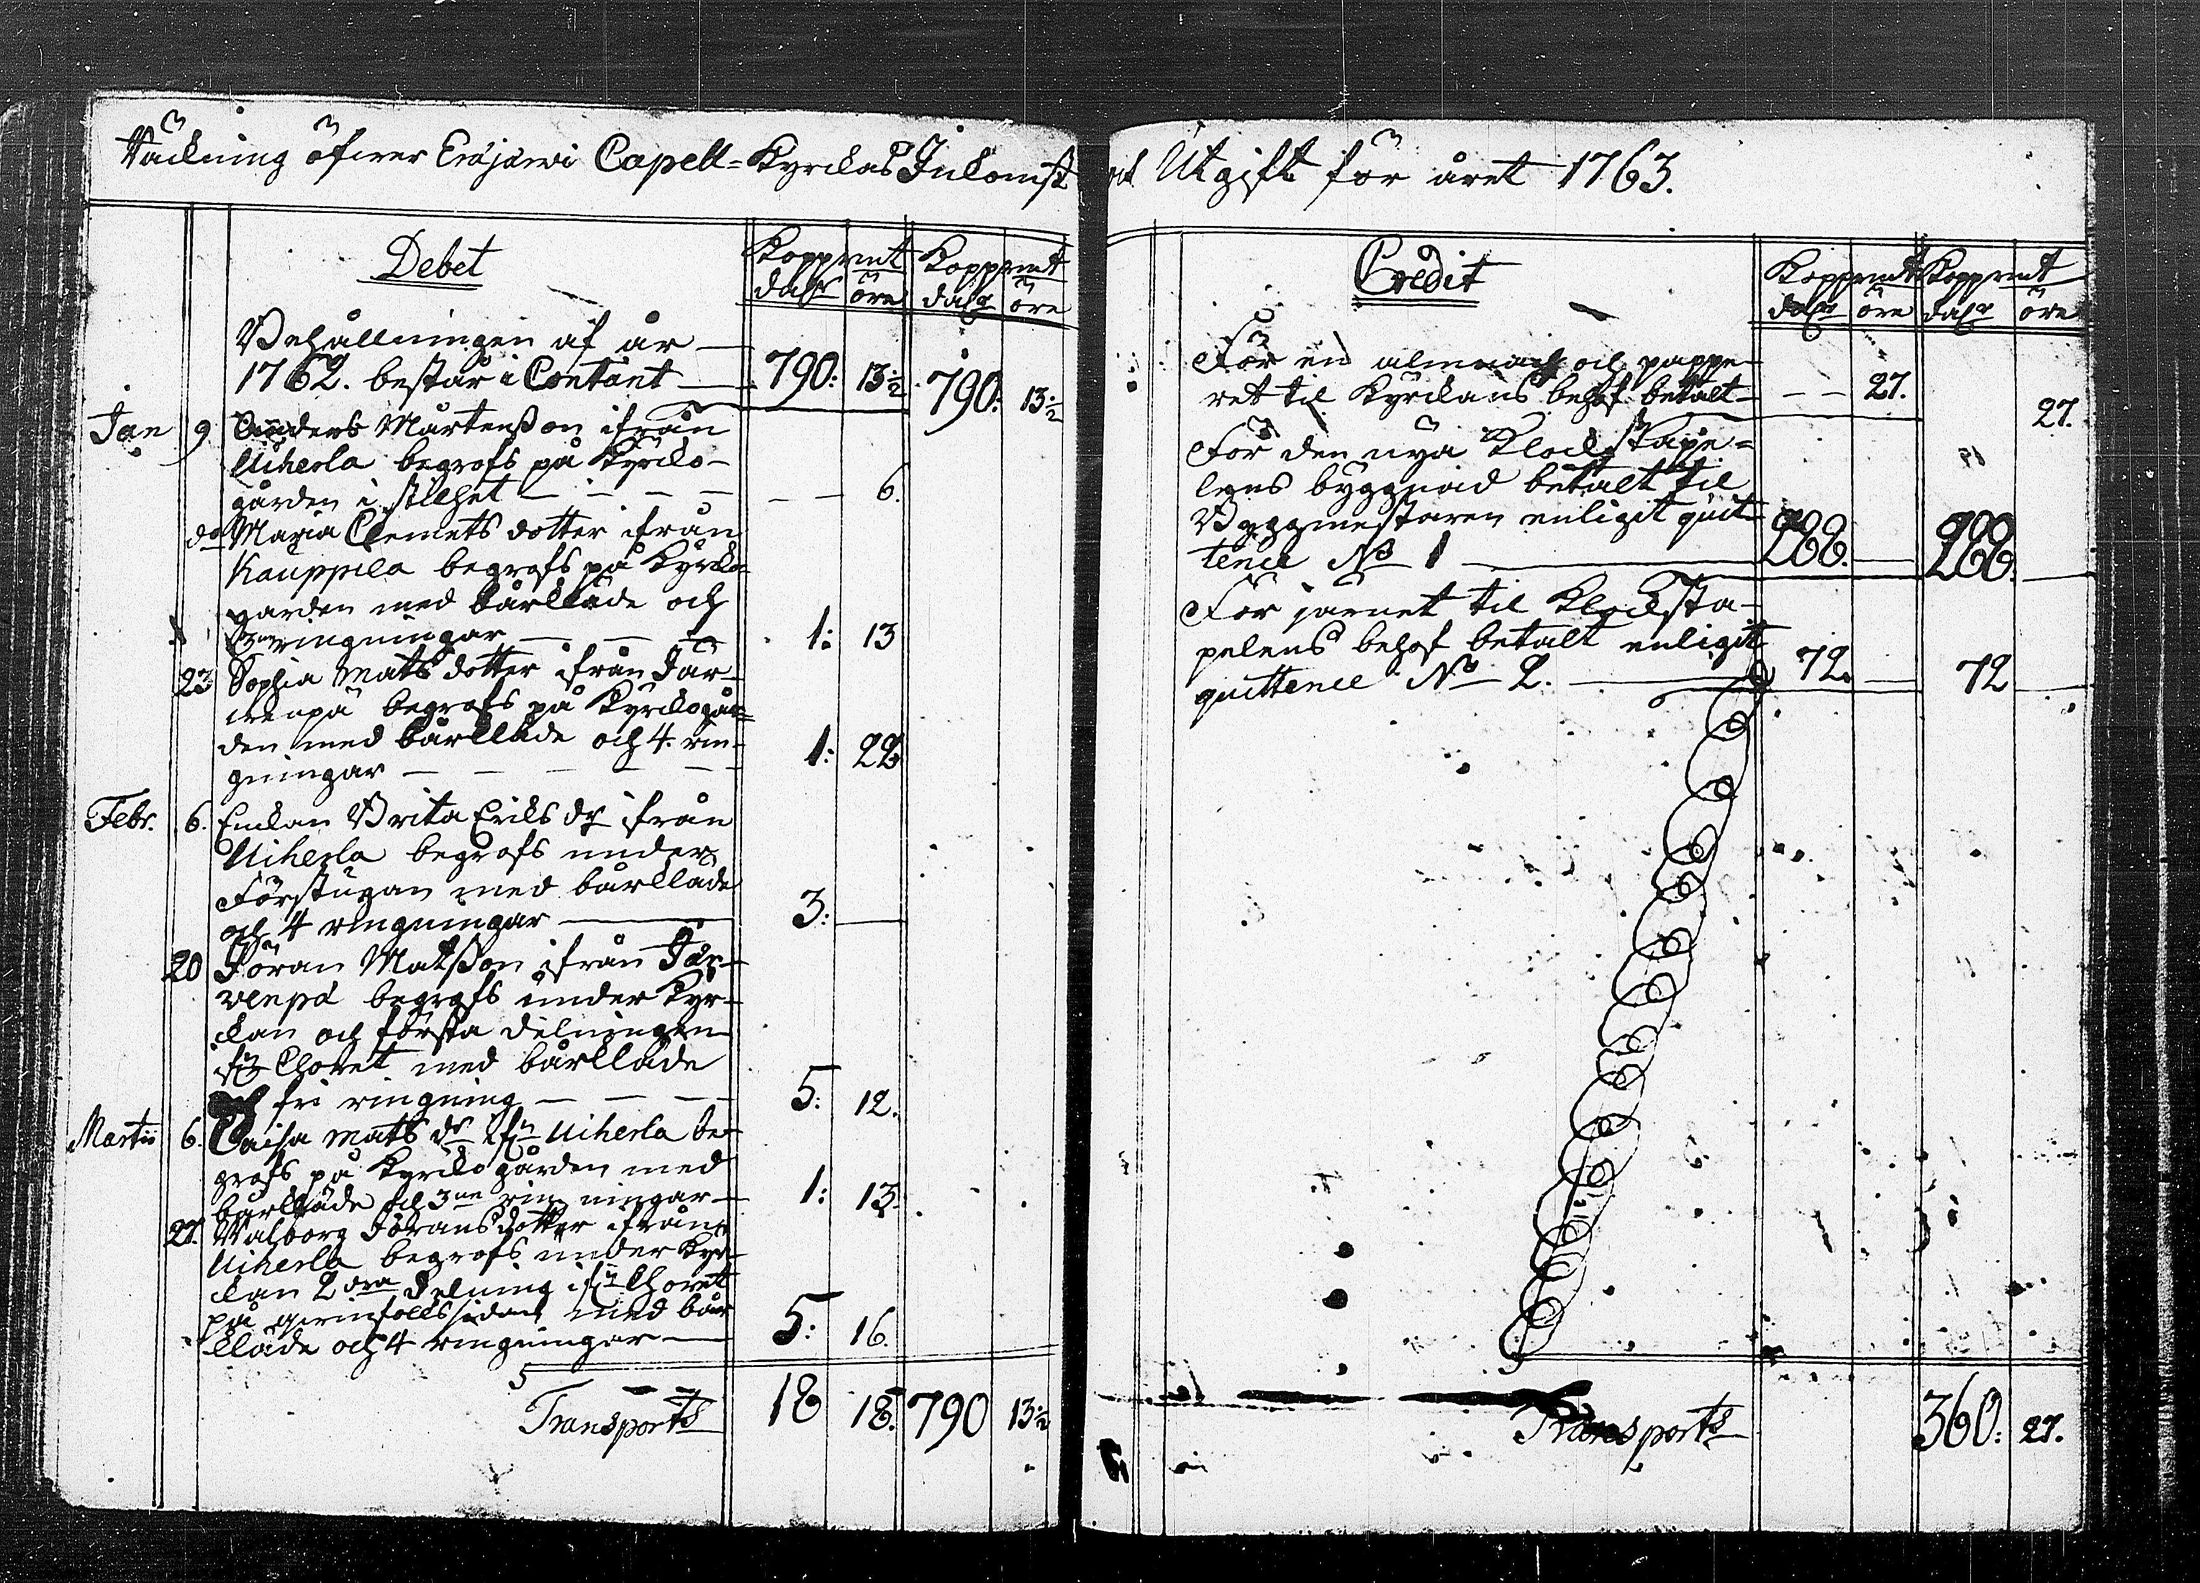 Räckning öfwer Eräjärwi Capell=Kyrckas Inkomst
och Utgift för året 1763.
Debet
Koppmt Koppmt
dalr öre dalr öre
Behållningen af år
1762. består i Contant 790: 13½ 790: 13½
Jan 9 Anders Mårtensson ifrån
Uiherla begrofs på Kyrcko-
gården i stillhet 6.
do Maria Clemets dotter ifrån
Kauppila begrofs på Kyrcko-
garden med bårkläde och
ringningar 1: 13
23 Sophia Mats dotter ifrån Jär-
wenpä begrofs på Kyrckogår=
den med bårkläde och 4. rin-
gningar 1: 22
Febr. 6. Enckan Brita Eriks dr ifrån
Uiherla begrofs under
Förstugan med bårkläde
och 4 ringningar 3:
20 Jöran Matsson ifrån Jär-
venpä begrofs under Kyr-
ckan och första delningen
Choret med bårkläde
och fri ringning 5: 12.
Martii 6. Caisa Mats dr ifrn Uiherla be-
grofs på Kyrckogården med
bårkläde och 3ne ringningar 1: 13
27. Walborg Jöransdotter ifrån
Uiherla begrofs under Kyr-
ckan 2dra delning ifrn Choret
på qwinfolckssidan med bår
kläde och 4 ringningar 5: 16.
Transport 18 18. 790 13½
Credit
Koppmt Koppmt
dalr öre dalr öre
För en almnach och pappe-
ret til Kyrckans behof betalt 27. 27.
För den nya Klockstape=
lens byggnad betalt til
Byggmestaren enligit quit-
tence No 1 288. 288.
För järnet til Klocksta-
pelens behof betalt enligit
quittence No 2. 72. 72
Transport 360: 27.